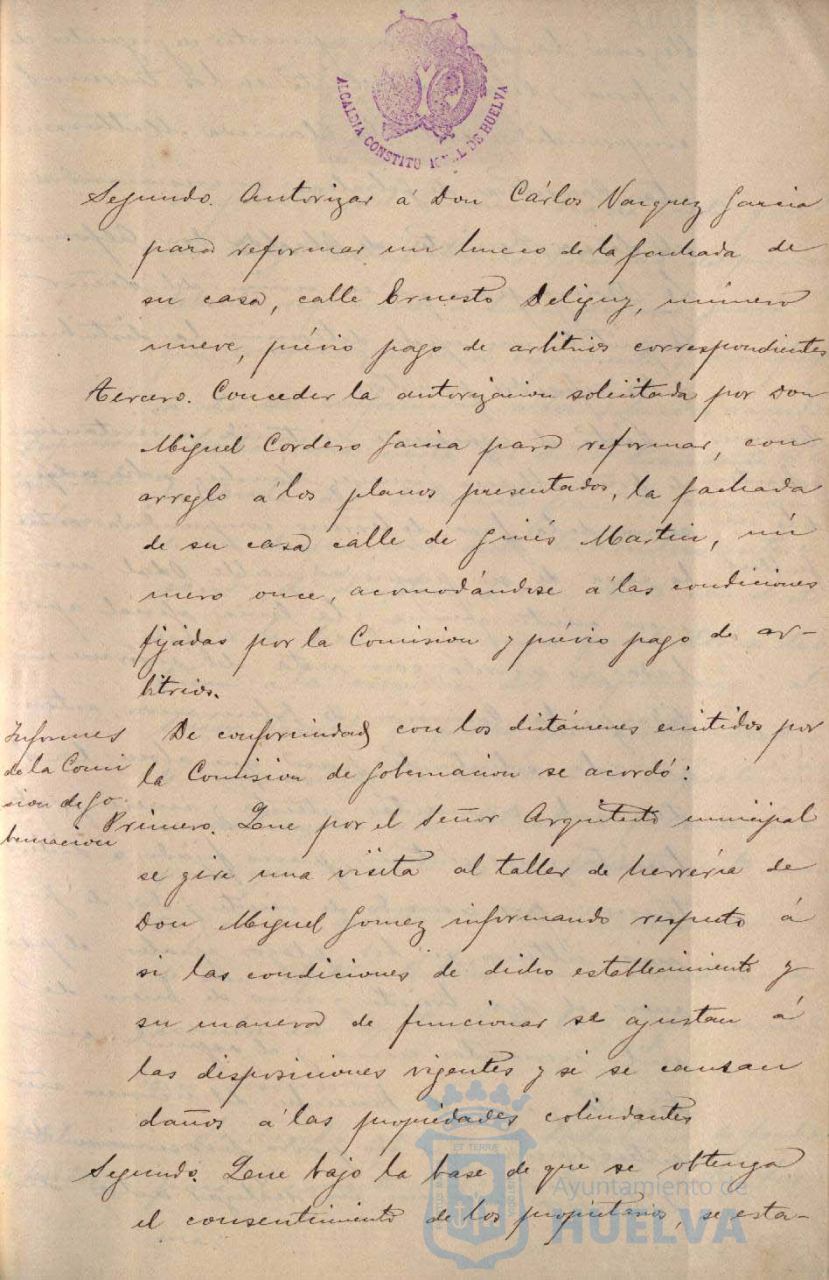 ALCALDIA CONSTITU N L DE HUELVA
Segundo. Autorizar á Don Cárlos Vazquez Garcia
para reformar un hueco de la fachada de
su casa, calle Ernesto Deligny, número
nueve, prévio pago de arbitrios correspondientes
Tercero. Conceder la autorizacion solicitada por Don
Miguel Cordero Garcia para reformar, con
arreglo á los planos presentados, la fachada
de su casa calle de Ginés Martin, nú
mero once, acomodándose á las condiciones
fijadas por la Comision y prévio pago de ar-
bitrios.
Informes
de la Comi
sion de Go
bernacion
De conformidad con los dictámenes emitidos por
la Comision de Gobernacion se acordó:
Primero. Que por el Señor Arquitecto municipal
se gire una visita al taller de herreria de
Don Miguel Gomez informando respecto á
si las condiciones de dicho establecimiento y
su manera de funcionar se ajustan á
las disposiciones vigentes y si se causan
daños á las propiedades colindantes
Segundo. Que bajo la base de que se obtenga
el consentimiento de los propietarios, se esta-
ET TERRÆ
Ayuntamiento de
HUELVA